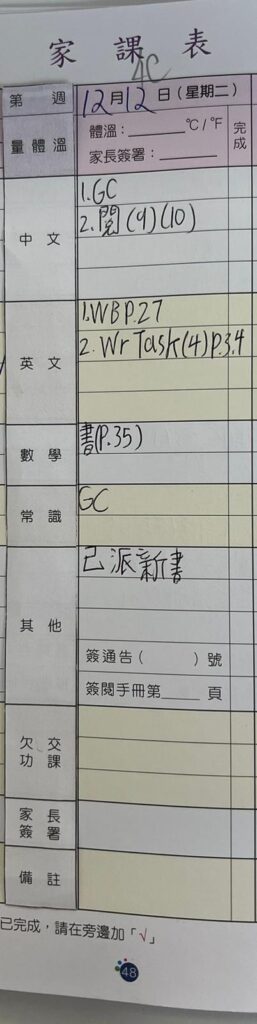 家課表
4C
第 週 12月12日(星期二)
量體溫 體溫:______℃/℉ 完成
家長簽署:______
中文 1.GC
2.閱(9)(10)
英文 1.WBP.27
2.Wr Task(4)P.3,4
數學 書(P.35)
常識 GC
其他 己派新書
簽通告( )號
簽閱手冊第____頁
欠交功課
家長簽署
備註
已完成,請在旁邊加「√」
48